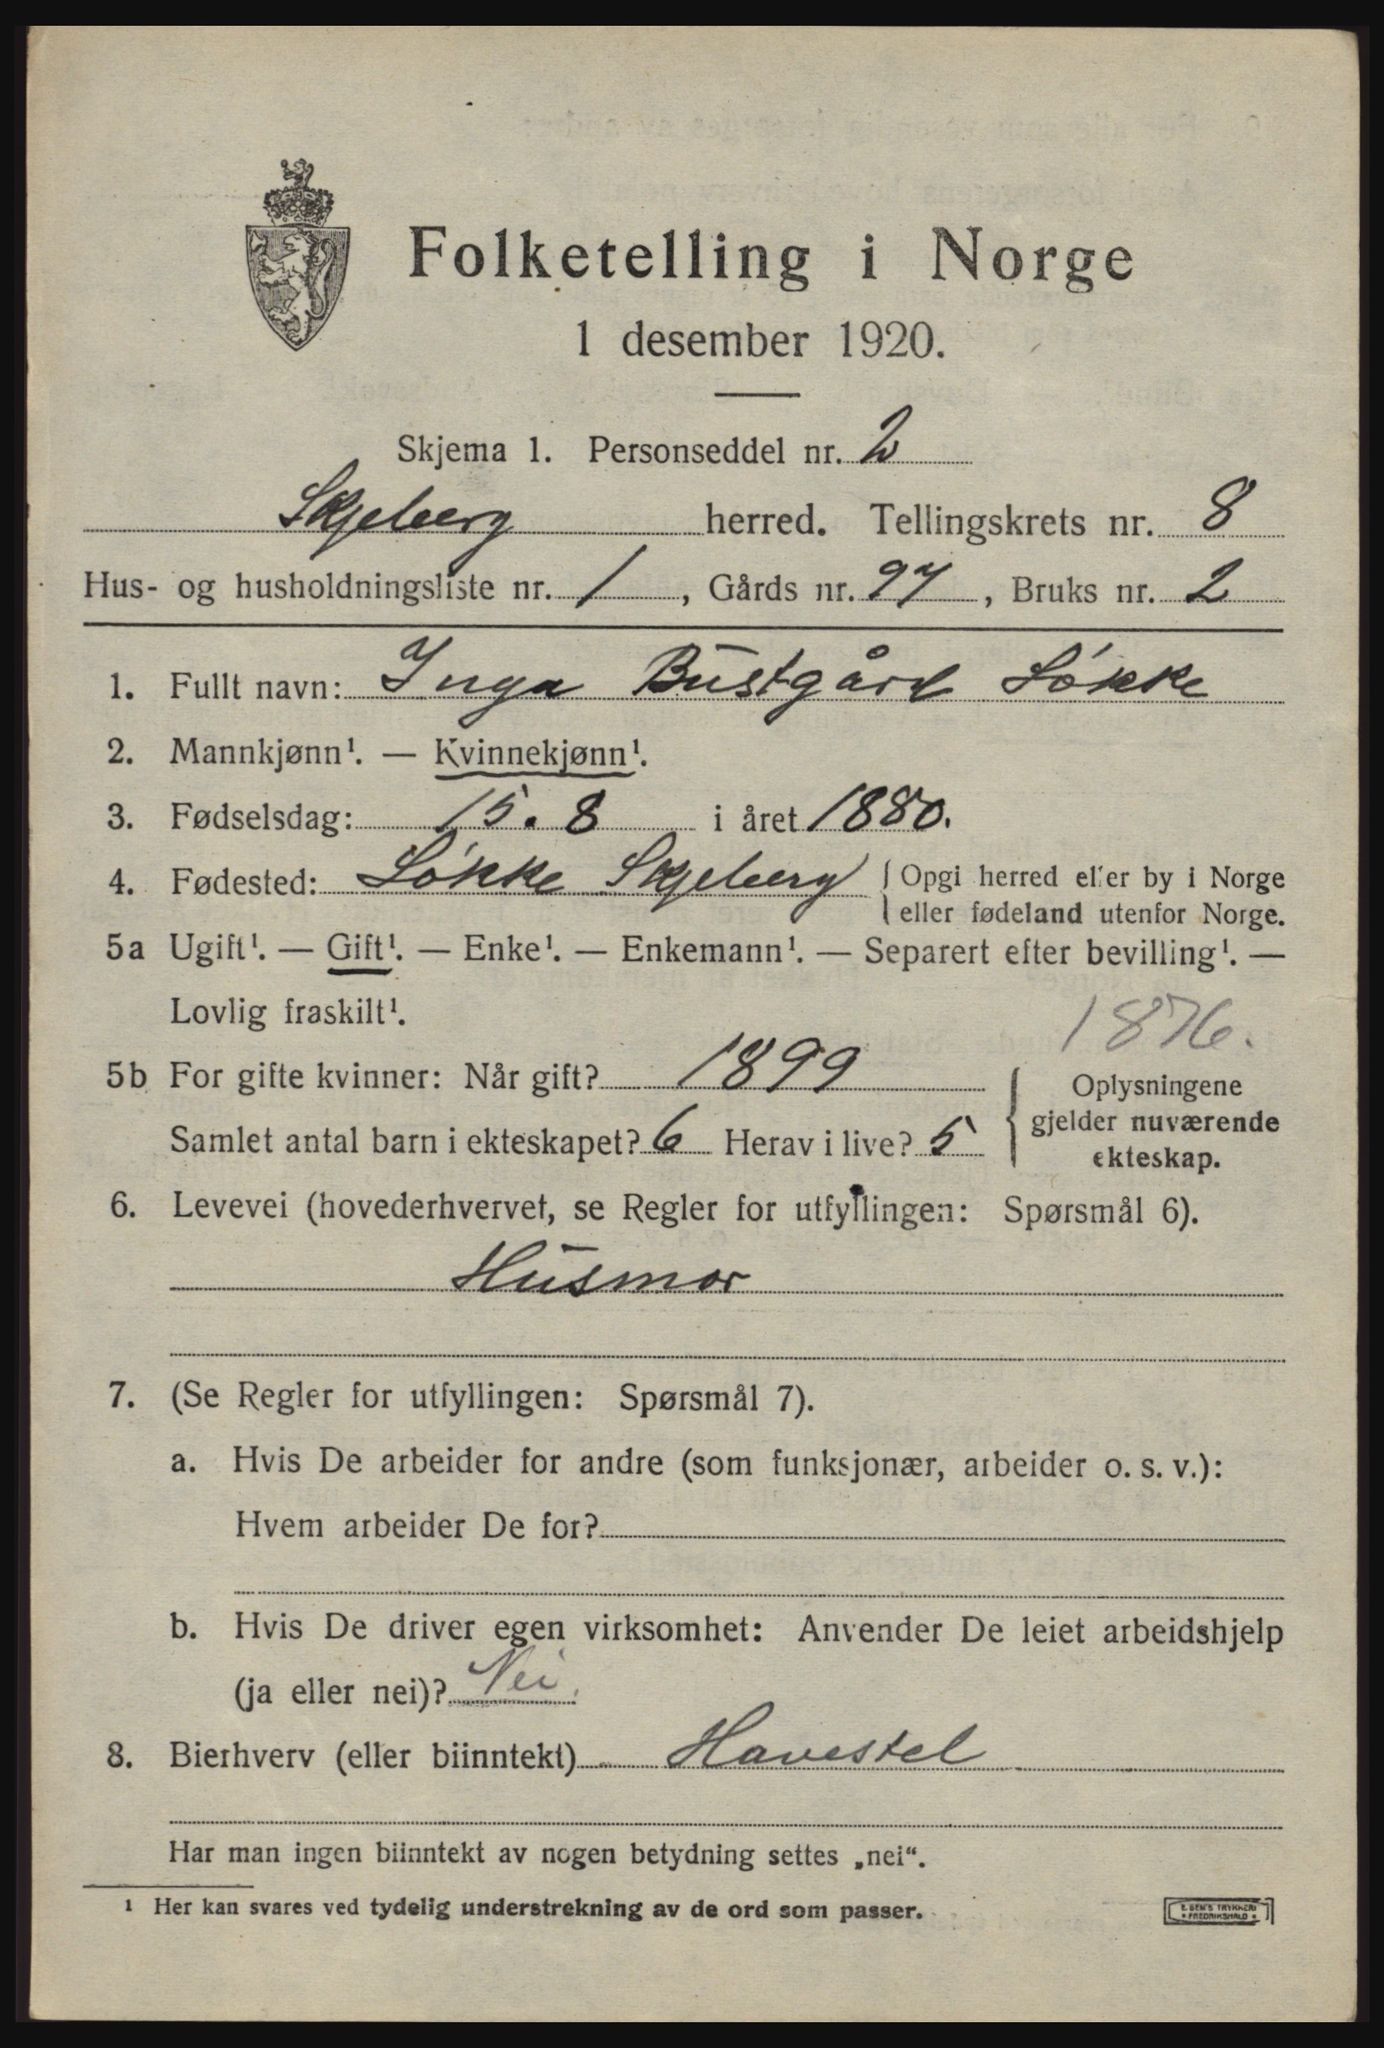 Folketelling i Norge
1 desember 1920.
Skjema 1. Personseddel nr. 2
Skjeberg herred. Tellingskrets nr. 8
Hus- og husholdningsliste nr. 1, Gårds nr. 97, Bruks nr. 2
1. Fullt navn: Inga Bustgård Løkke
2. Mannkjønn¹. — Kvinnekjønn¹.
3. Fødselsdag: 15. 8 i året 1880.
4. Fødested: Løkke Skjeberg { Opgi herred eller by i Norge
eller fødeland utenfor Norge.
5a Ugift¹. — Gift¹. — Enke¹. — Enkemann¹. — Separert efter bevilling¹. —
Lovlig fraskilt¹.
1876.
5b For gifte kvinner: Når gift? 1899
Samlet antal barn i ekteskapet? 6 Herav i live? 5
{ Oplysningene
gjelder nuværende
ekteskap.
6. Levevei (hovederhvervet, se Regler for utfyllingen: Spørsmål 6).
Husmor
7. (Se Regler for utfyllingen: Spørsmål 7).
a. Hvis De arbeider for andre (som funksjonær, arbeider o. s. v.):
Hvem arbeider De for?
b. Hvis De driver egen virksomhet: Anvender De leiet arbeidshjelp
(ja eller nei)? Nei.
8. Bierhverv (eller biinntekt) Havestel
Har man ingen biinntekt av nogen betydning settes „nei“.
¹ Her kan svares ved tydelig understrekning av de ord som passer.
E. SEM'S TRYKKERI
• FREDRIKSHALD •